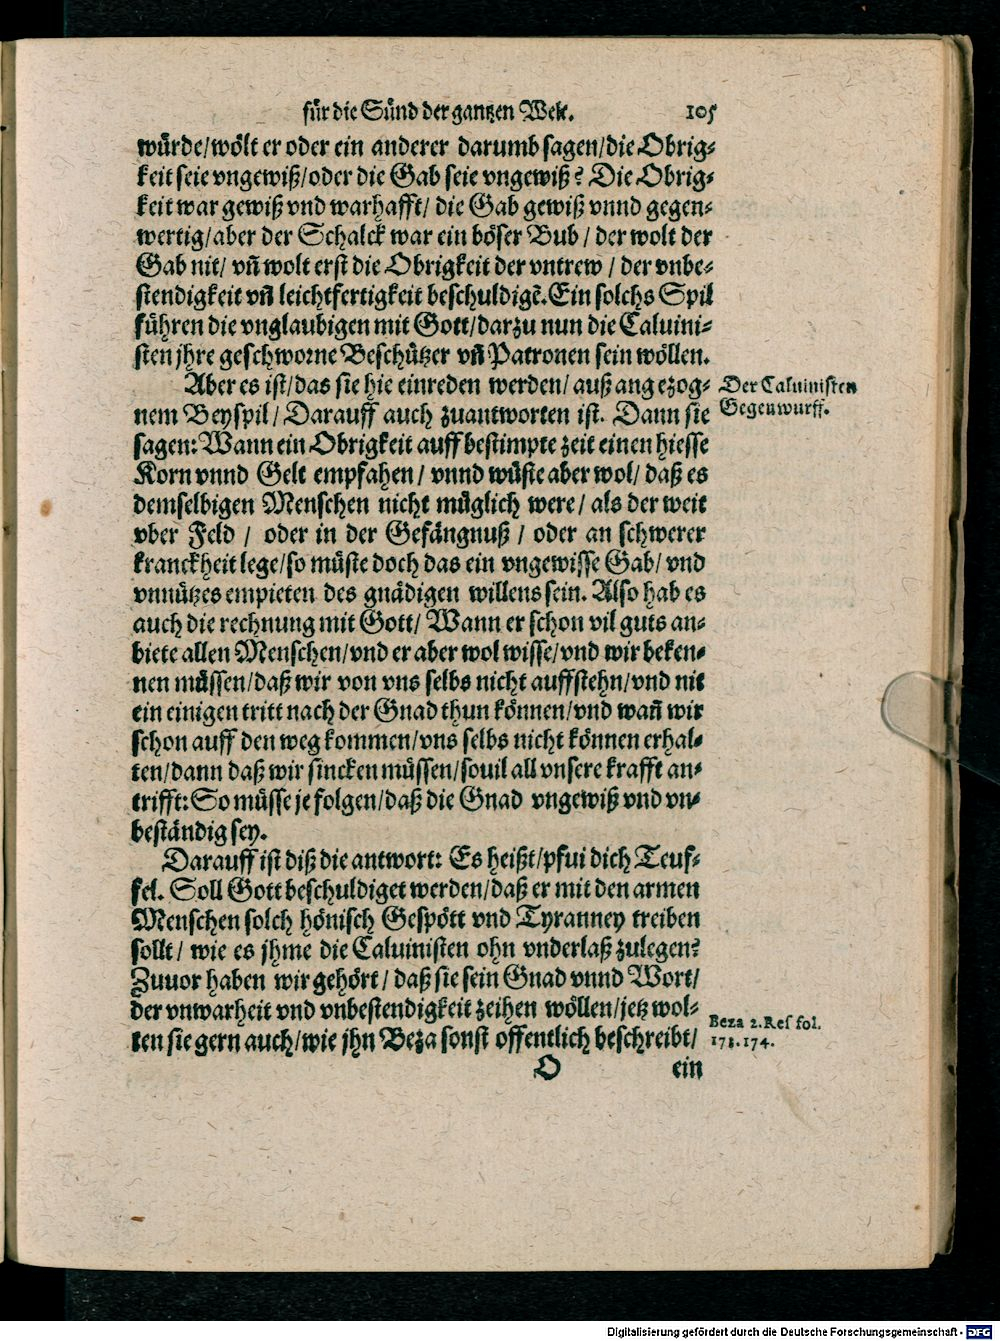 für die Sünd der gantzen Welt. 105
würde/wölt er oder ein anderer darumb sagen/die Obrig-
keit seie vngewiß/oder die Gab seie vngewiß? Die Obrig-
keit war gewiß vnd warhafft/ die Gab gewiß vnnd gegen-
wertig/aber der Schalck war ein böser Bub / der wolt der
Gab nit/ vñ wolt erst die Obrigkeit der vntrew / der vnbe-
stendigkeit vñ leichtfertigkeit beschuldigẽ. Ein solchs Spil
führen die vnglaubigen mit Gott/darzu nun die Caluini-
sten jhre geschworne Beschützer vñ Patronen sein wöllen.
Aber es ist/das sie hie einreden werden/ auß angezog-
nem Beyspil/ Darauff auch zuantworten ist. Dann sie
sagen: Wann ein Obrigkeit auff bestimpte zeit einen hiesse
Korn vnnd Gelt empfahen / vnnd wüste aber wol/ daß es
demselbigen Menschen nicht müglich were/ als der weit
vber Feld / oder in der Gefängnuß / oder an schwerer
kranckheit lege/so müste doch das ein vngewisse Gab/ vnd
vnnützes empieten des gnädigen willens sein. Also hab es
auch die rechnung mit Gott/ Wann er schon vil guts an-
biete allen Menschen/vnd er aber wol wisse/vnd wir beken-
nen müssen/daß wir von vns selbs nicht auffstehn/vnd nit
ein einigen tritt nach der Gnad thun können/vnd wañ wir
schon auff den weg kommen/vns selbs nicht können erhal-
ten/dann daß wir sincken müssen/souil all vnsere krafft an-
trifft: So müsse je folgen/daß die Gnad vngewiß vnd vn-
beständig sey.
Darauff ist diß die antwort: Es heißt/pfui dich Teuf-
fel. Soll Gott beschuldiget werden/daß er mit den armen
Menschen solch hönisch Gespött vnd Tyranney treiben
sollt/ wie es jhme die Caluinisten ohn vnderlaß zulegen?
Zuuor haben wir gehört/ daß sie sein Gnad vnnd Wort/
der vnwarheit vnd vnbestendigkeit zeihen wöllen/jetz wol-
ten sie gern auch/wie jhn Beza sonst offentlich beschreibt/
O ein
Der Caluinisten
Gegenwurff.
Beza 2. Res fol.
173. 174.
Digitalisierung gefördert durch die Deutsche Forschungsgemeinschaft - DFG